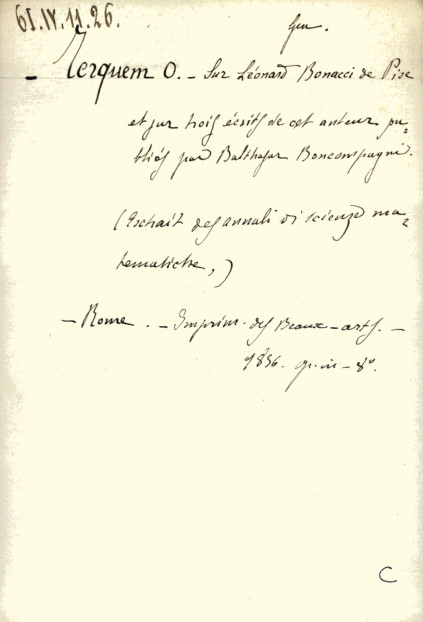 61.IV.11.26.
– Terquem O. – Sur Léonard Bonacci de Pise
et sur trois écrits de cet auteur pu=
bliés par Balthasar Boncompagni.
(Extrait des annali di scienze ma=
tematiche,)
– Rome. – Imprim. des Beaux-arts. –
1856. in-8°.
C